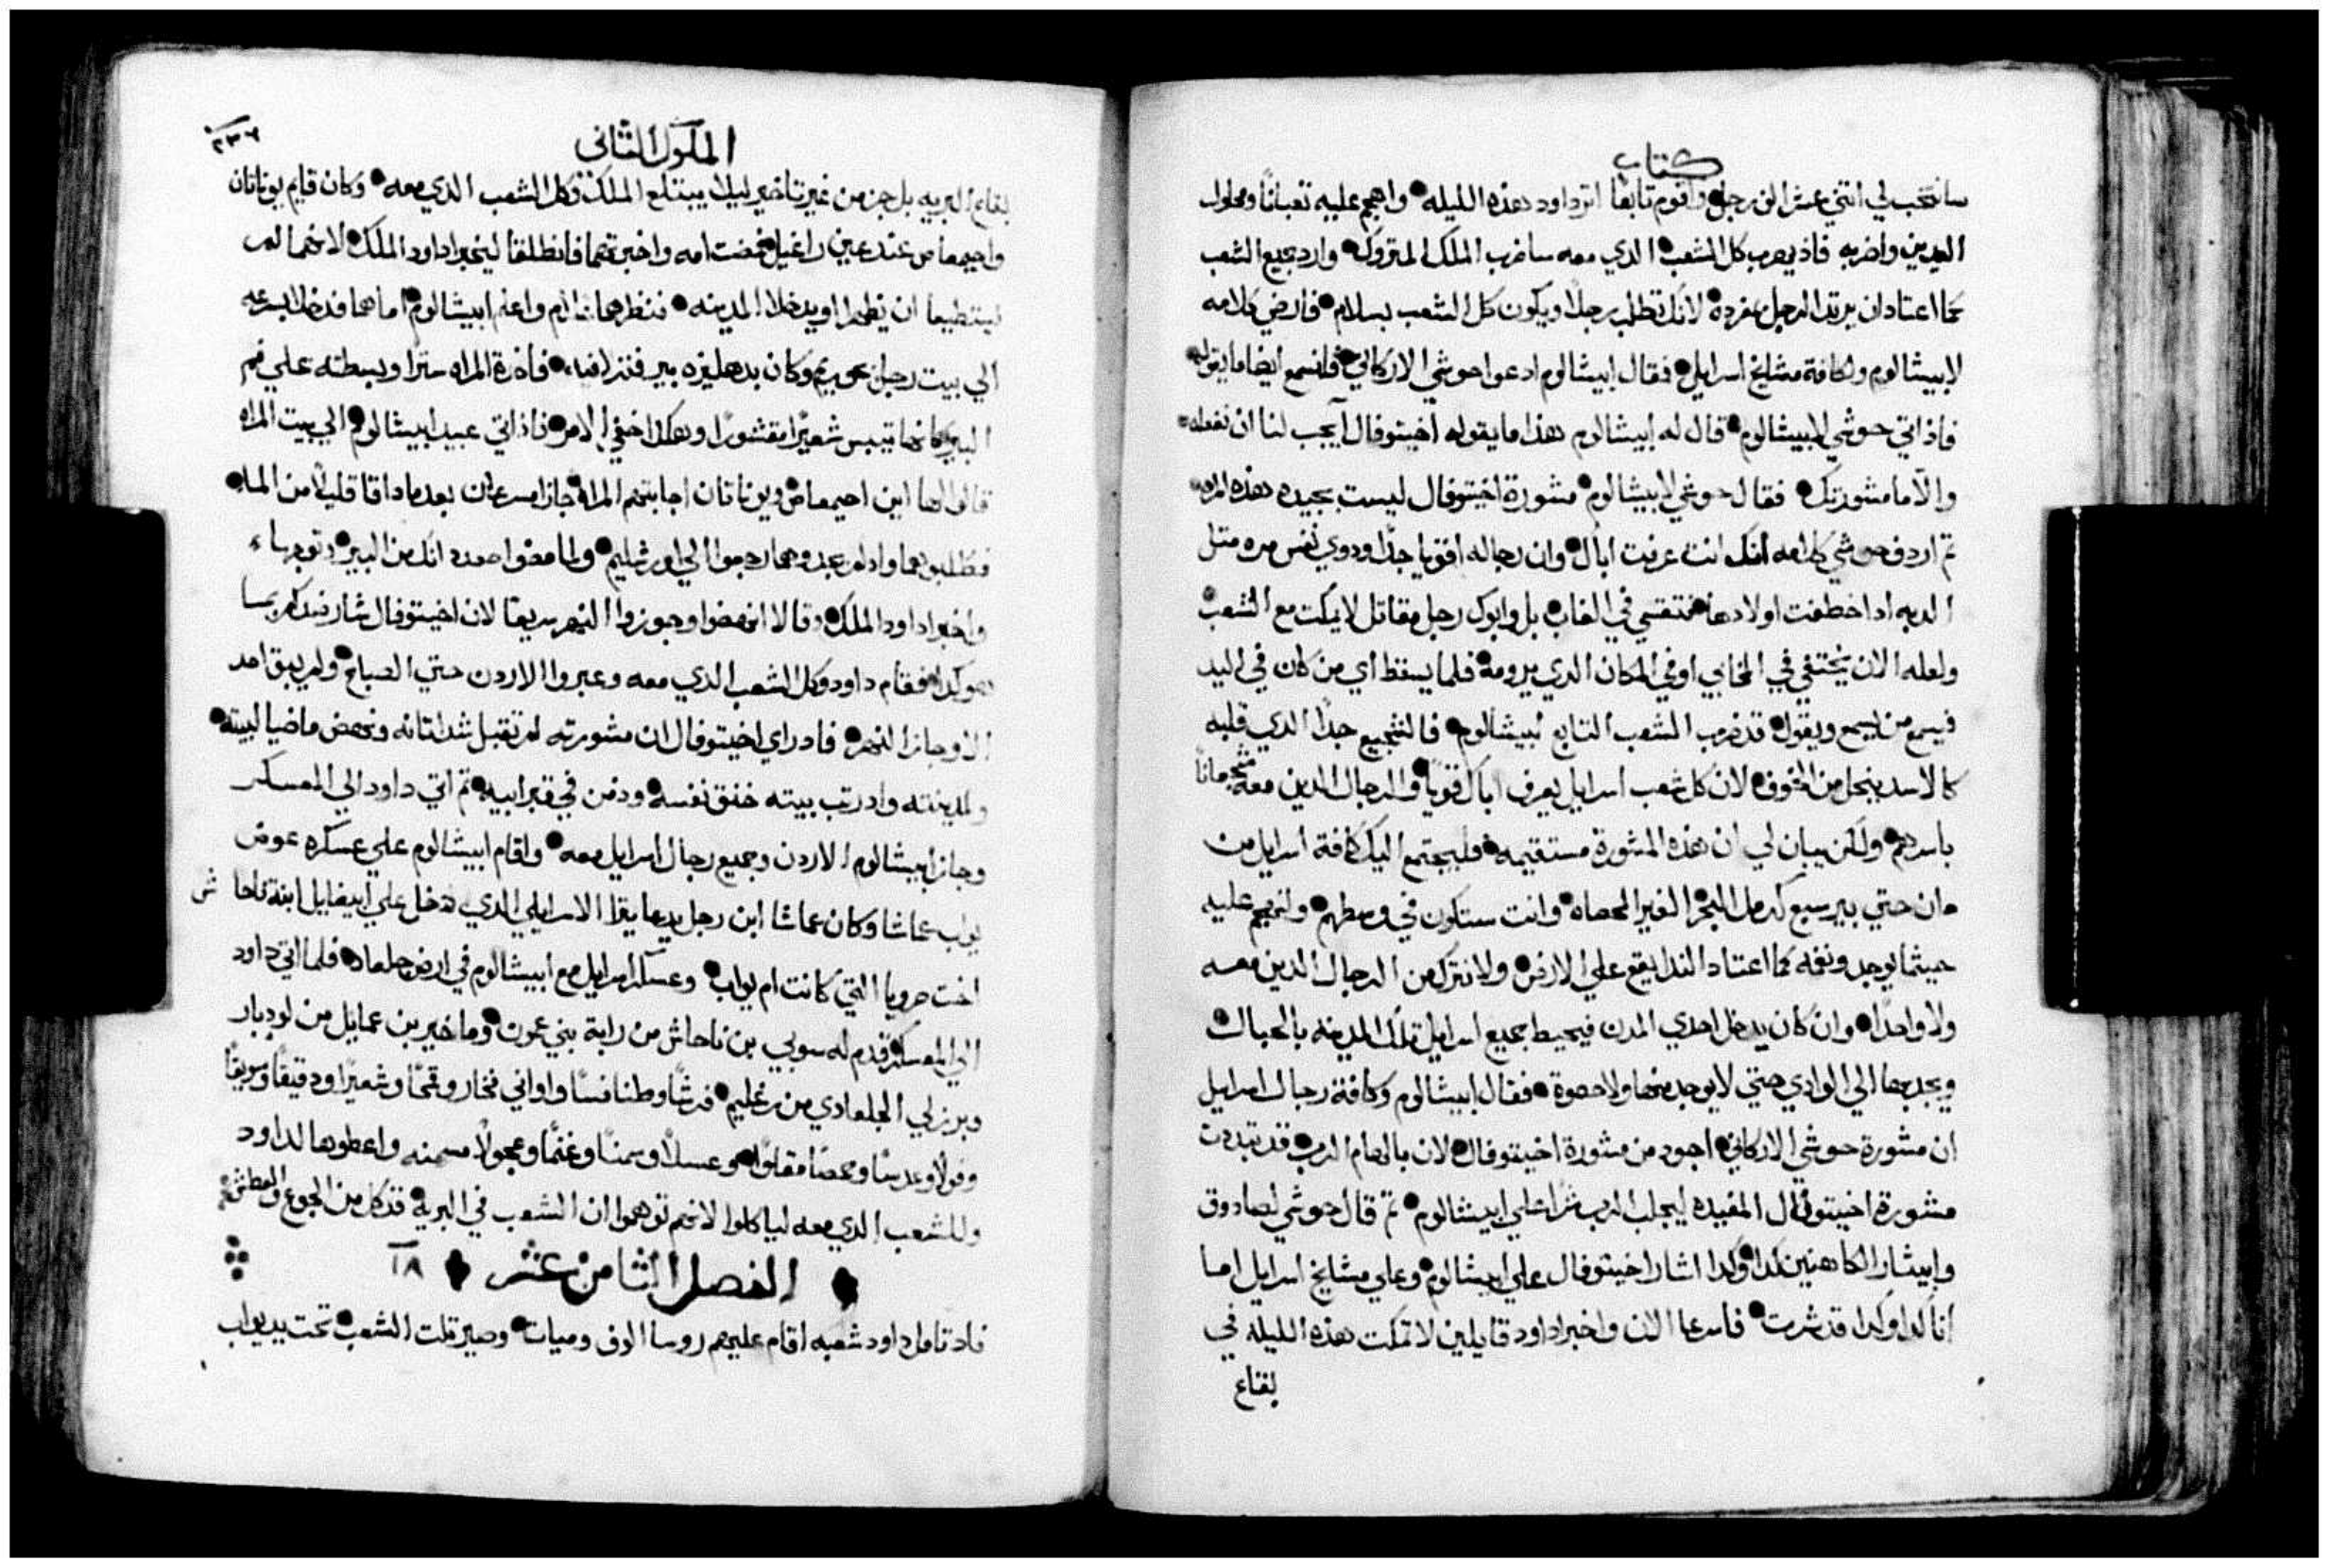 كتاب
سانتخب لي اثني عشر الف رجل واقوم تابعًا اثر داود هذه الليله واهجم عليه تعبانًا ومحلول
اليدين واضربه فاذ يهرب كل الشعب الدي معه ساضرب الملك المتروك وارد جميع الشعب
كما اعتاد ان يرتد الرجل بمفرده لانك تطلب رجلًا ويكون كل الشعب بسلام فارضي كلامه
لابيشالوم ولكافة مشايخ اسرايل فقال ابيشالوم ادعوا حوشي الاركاني فلنسمع ايضا ما يقوله
فاذ اتي حوشي لابيشالوم قال له ابيشالوم هذا ما يقوله اخيتوفال ايجب لنا ان نفعله
والا ما مشورتك فقال حوشي لابيشالوم مشورة اخيتوفال ليست بجيده هذه المره
تم اردف حوشي كلامه انك انت عرفت اباك وان رجاله اقويا جدًا ودوي نفس مره متل
الدبه ادا خطفت اولادها فتقسي في الغاب بل وابوك رجل مقاتل لا يمكت مع الشعب
ولعله الان يختفي في المخابي او في المكان الدي يرومه فلما يسقط اي من كان في اليد
فيسمع من يسمع ويقول قد ضرب الشعب التابع ابيشالوم فالشجيع جدًا الدي قلبه
كالاسد ينحل من الخوف لان كل شعب اسرايل يعرف اباك قويًا والرجال الدين معه شجعانًا
باسرهم ولكن يبان لي ان هذه المشورة مستقيمه فليجتمع اليك كافة اسرايل من
دان حتي بير سبع كرمل البحر الغير المحصاه وانت ستكون في وسطهم ولنهجم عليه
حيثما يوجد ونغمه كما اعتاد الندا يقع علي الارض ولا نترك من الرجال الدين معه
ولا واحدًا وان كان يدخل احدي المدن فيحيط جميع اسرايل تلك المدينه بالحبال
ويجدبها الي الوادي حتي لا يوجد منها ولا حصوة فقال ابيشالوم وكافة رجال اسرايل
ان مشورة حوشي الاركاني اجود من مشورة اخيتوفال لان بالهام الرب قد تبددت
مشورة اخيتوفال المفيده ليجلب الرب شرًا علي ابيشالوم تم قال حوشي لصادوق
وابيثار الكاهنين كدا وكدا اشار اخيتوفال علي ابيشالوم وعلي مشايخ اسرايل اما
انا كدا وكدا قد شرت فاسرعا الان واخبرا داود قايلين لا تمكت هذه الليله في
بقاع
الملوك الثاني
٢٣٦
بقاع البريه بل جز من غير تاخير ليلا يبتلع الملك وكل الشعب الدي معه وكان قايم يوناتان
واحيمعاص عند عين راغيل فمضت امه واخبرتهما فانطلقا ليخبرا داود الملك لانهما لم
يستطيعا ان يظهرا او يدخلا المدينه فنظرهما غلام واعلم ابيشالوم اما هما فدخلا بسرعه
الي بيت رجل في بحوريم وكان بدهليزه بير فنزلا فيه فاخدة المراه سترًا وبسطته علي فم
البير كانها تيبس شعيرًا مقشورًا وهكدا اختفي الامر فاذ اتي عبيد ابيشالوم الي بيت المراه
قالوا لها اين احيمعاص ويوناتان اجابتهم المراه جازا مسرعان بعد ما داقا قليلًا من الما
فطلبوهما واذ لم يجدوهما رجعوا الي اورشليم ولما مضوا صعد اوليك من البير وتوجها
واخبرا داود الملك وقالا انهضوا وجوزوا النهر سريعا لان اخيتوفال شار ضدكم بمسا
هو كدا فقام داود وكل الشعب الدي معه وعبروا الاردن حتي الصباح ولم يبق احد
الا وجاز النهر فاد راي اخيتوفال ان مشورته لم تقبل شد اتانه ونهض ماضيا لبيته
ولمدينته واد رتب بيته خنق نفسه ودفن في قبر ابيه تم اتي داود الي المعسكر
وجاز ابيشالوم الاردن وجميع رجال اسرايل معه واقام ابيشالوم علي عسكره عوض
يواب عماشا وكان عماشا ابن رجل يدعا يترا الاسرايلي الدي دخل علي ابيغايل ابنة ناحا ش
اخت صرويا التي كانت ام يواب وعسكر اسرايل مع ابيشالوم في ارض جلعاد فلما اتي داود
الي المعسكر قدم له سوبي بن ناحاش من رابة بني عمون وماخير بن عمايل من لودبار
وبرزلي الجلعادي من رغليم فرشًا وطنافسًا واواني فخار وقمحًا وشعيرًا ودقيقًا وسويقًا
وفولًا وعدسًا وحمصًا مقلوًا وعسلًا وسمنًا وغنمًا وعجولًا مسمنه واعطوها لداود
وللشعب الدي معه لياكلوا لانهم توهموا ان الشعب في البرية قد كل من الجوع والعطش
الفصل الثامن عشر ١٨
فاد تامل داود شعبه اقام عليهم روسا الوف وميات وصير تلت الشعب تحت يد يواب